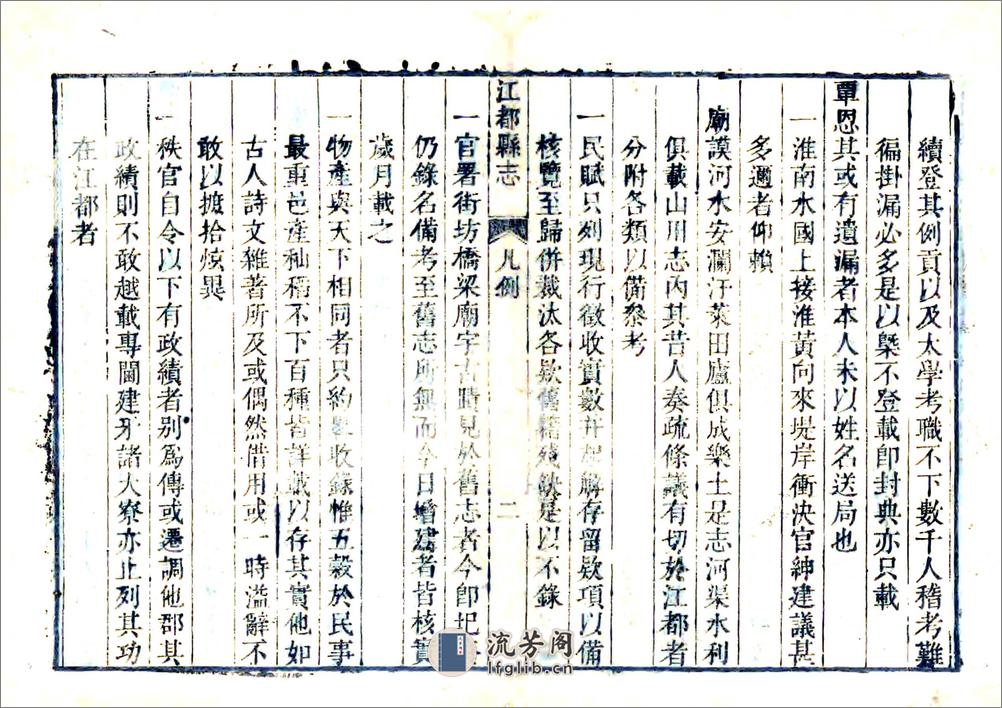 續登其例貢以及太學考職不下數千人稽考難
徧掛漏必多是以槩不登載卽封典亦只載
覃恩其或有遺漏者本人未以姓名送局也
一淮南水國上接淮黃向來堤岸衝決官紳建議甚
多邇者仰賴
廟謨河水安瀾汙萊田廬俱成樂土是志河渠水利
俱載山川志內其昔人奏疏條議有切於江都者
分附各類以備叅考
一民賦只列現行徵收實數并起解存留欵項以備
核覽至歸併裁汰各欵舊籍殘缺是以不錄
江都縣志 凡例 二
一官署街坊橋梁廟宇古蹟見於舊志者今卽圯
仍錄名備考至舊志所無而今日增建者皆核實
歲月載之
一物產與天下相同者只約畧收錄惟五穀於民事
最重邑產秈稻不下百種皆詳載以存其實他如
古人詩文雜著所及或偶然借用或一時濫辭不
敢以摭拾炫異
一秩官自令以下有政績者别爲傳或遷調他郡其
政績則不敢越載專閫建牙諸大寮亦止列其功
在江都者
流芳阁
lfglib.cn